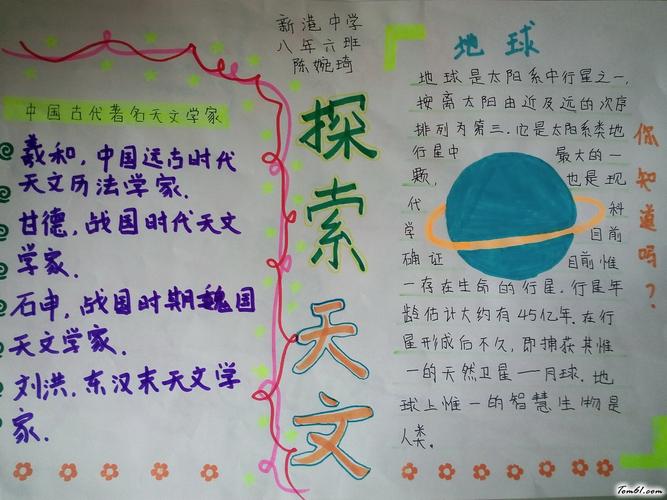 新港中学
八年六班
陈婉琦
探索天文
中国古代著名天文学家
羲和,中国远古时代
天文历法学家.
甘德,战国时代天文
学家.
石申,战国时期魏国
天文学家.
刘洪.东汉末天文学
家.
地球
地球是太阳系中行星之一,
按离太阳由近及远的次序
排列为第三.它是太阳系类地
行星中 最大的一
颗, 也是现
代 科
学 目前
确证 目前惟
一存在生命的行星.行星年
龄估计大约有45亿年.在行
星形成后不久,即捕获其惟
一的天然卫星——月球.地
球上惟一的智慧生物是
人类.
你知道吗?
Tom61.com